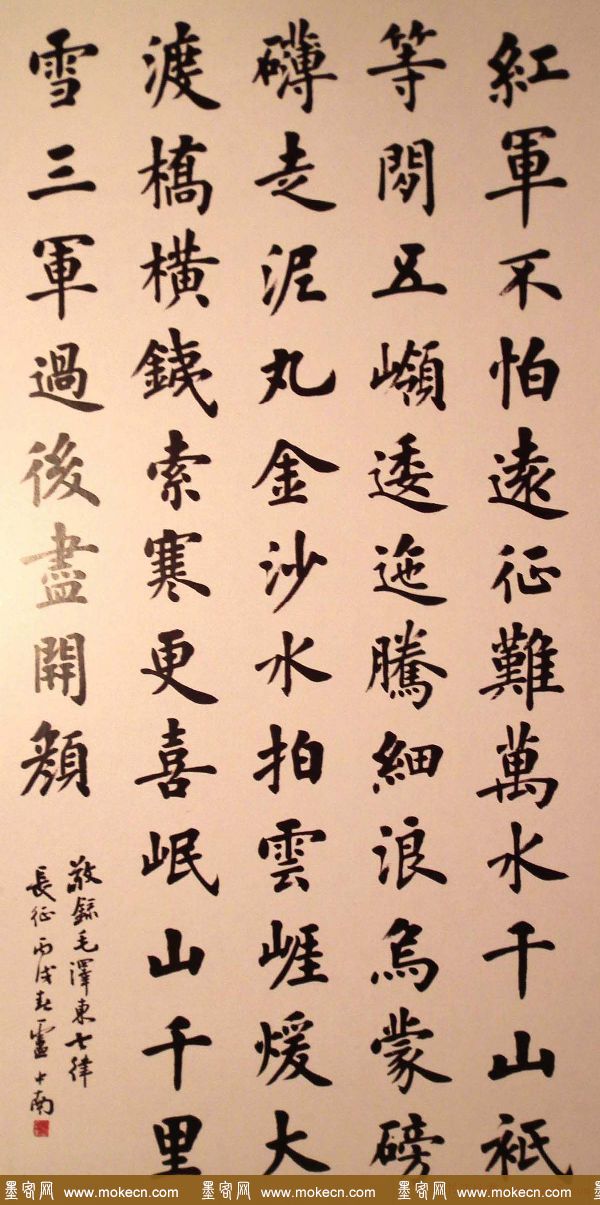 紅軍不怕遠征難萬水千山祇
等閒五嶺逶迤騰細浪烏蒙磅
礴走泥丸金沙水拍雲崖煖大
渡橋橫鐵索寒更喜岷山千里
雪三軍過後盡開顏
敬錄毛澤東七律
長征丙戌春盧中南
墨客网 www.mokecn.com 墨客网 www.mokecn.com 墨客网 www.mokecn.com